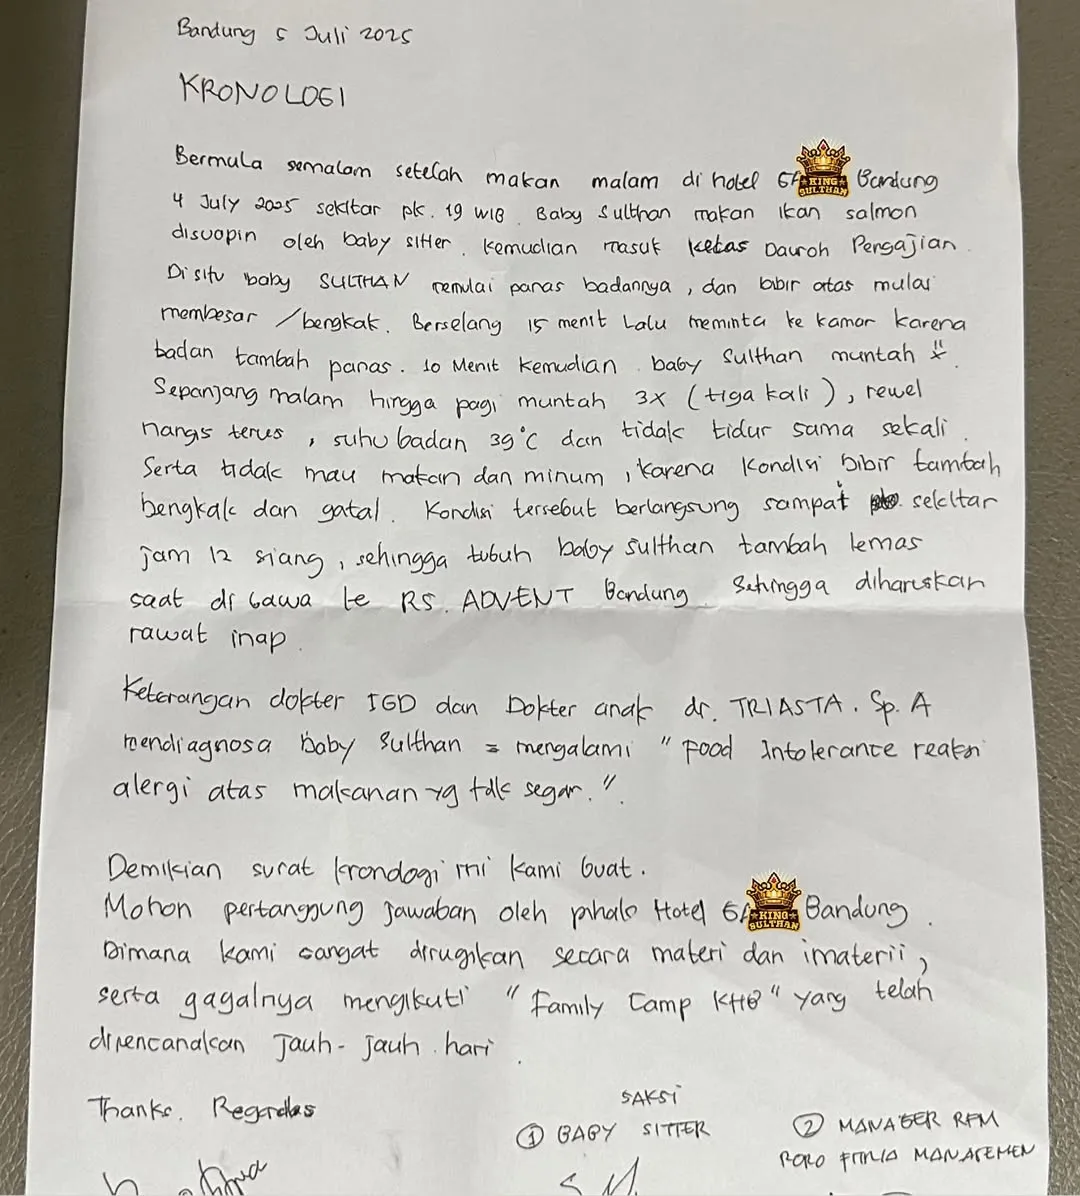 Bandung 5 Juli 2025
KRONOLOGI
Bermula semalam setelah makan malam di hotel GA KING SULTHAN Bandung
4 July 2025 sekitar pk. 19 WIB. Baby Sulthan makan ikan salmon
disuapin oleh baby sitter. Kemudian masuk kelas Dauroh Pengajian.
Disitu baby SULTHAN memulai panas badannya, dan bibir atas mulai
membesar / bengkak. Berselang 15 menit Lalu meminta ke kamar karena
badan tambah panas. 10 Menit Kemudian baby Sulthan muntah".
Sepanjang malam hingga pagi muntah 3x (tiga kali), rewel
nangs terus, suhu badan 39°C dan tidak tidur sama sekali.
Serta tidak mau makan dan minum, karena kondisi bibir tambah
bengkak dan gatal. Kondisi tersebut berlangsung sampai sekitar
jam 12 siang, sehingga tubuh baby sulthan tambah lemas
saat di bawa ke RS. ADVENT Bandung. Sehingga diharuskan
rawat inap.
Keterangan dokter IGD dan Dokter anak dr. TRIASTA. Sp. A
mendiagnosa baby Sulthan = mengalami " Food Intolerance reaksi
alergi atas makanan yg tdk segar.".
Demikian surat kronologi ini kami buat.
Mohon pertanggung jawaban oleh pihak Hotel GA KING SULTHAN Bandung.
Dimana kami sangat dirugikan secara materi dan imaterii,
serta gagalnya mengikuti " Family Camp KHB" yang telah
direncanakan Jauh-jauh hari.
Thanks. Regards
SAKSI
① BABY SITTER
② MANAGER RFM
RORO FITRIA MANAGEMEN